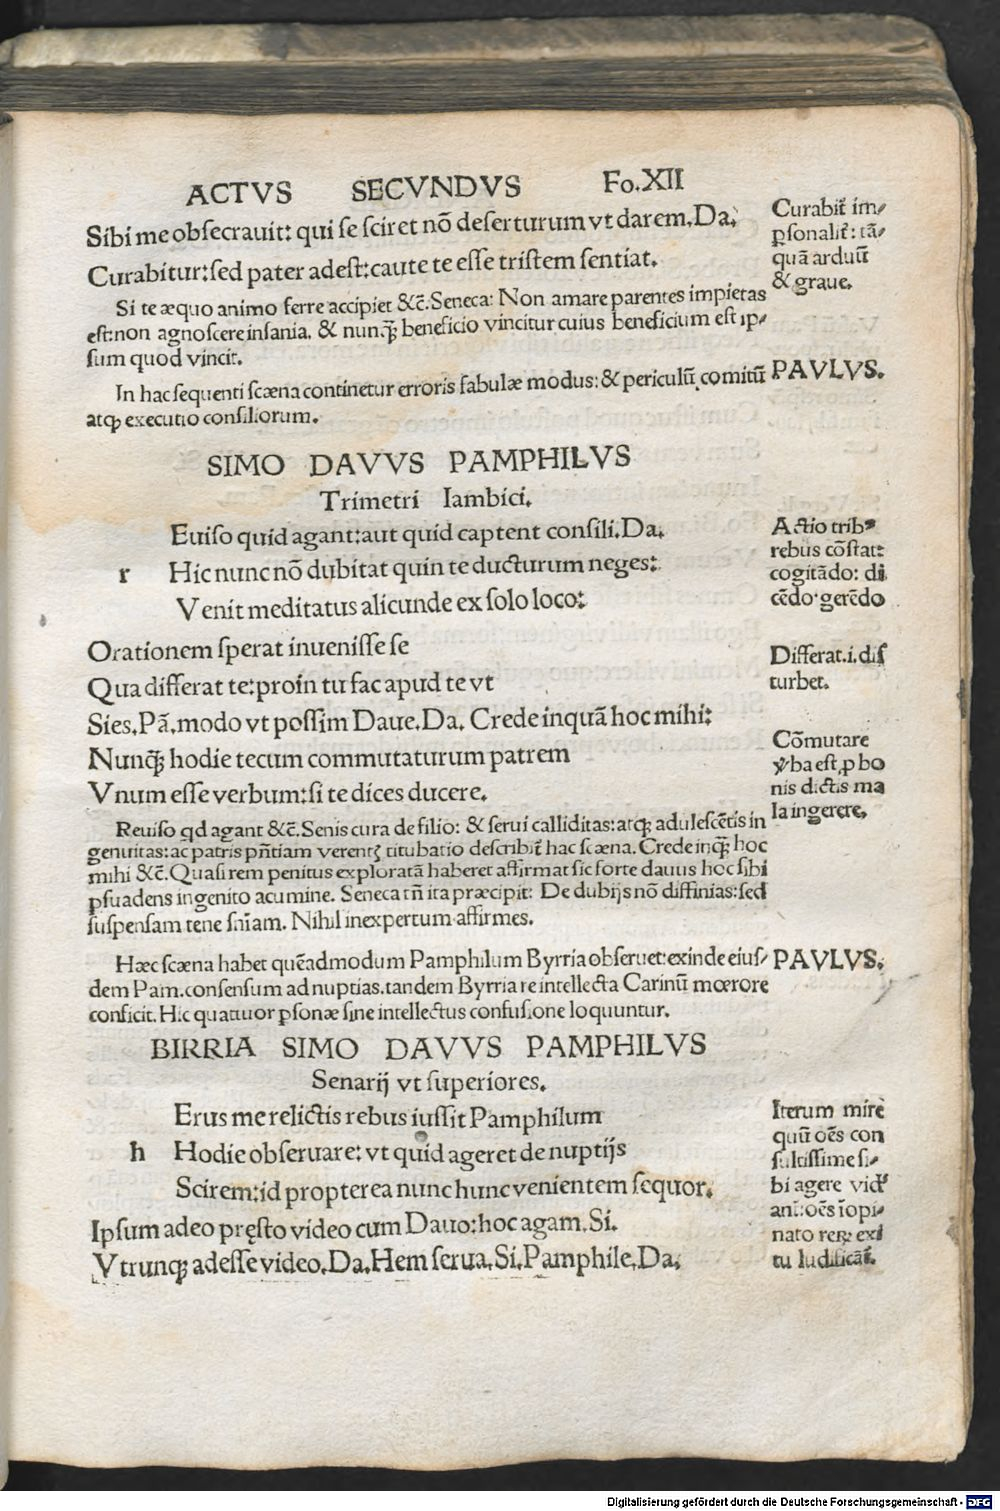 ACTVS SECVNDVS Fo.XII
Sibi me obsecrauit: qui se sciret nō deserturum vt darem. Da.
Curabitur: sed pater adest: caute te esse tristem sentiat.
Curabit̄ im/
ꝑsonalit̄: tā/
quā arduū
& graue.
Si te æquo animo ferre accipiet &c̄. Seneca: Non amare parentes impietas
est: non agnoscere insania. & nunꝙ̄ beneficio vincitur cuius beneficium est ip/
sum quod vincit.
In hac sequenti scæna continetur erroris fabulæ modus: & periculū comitū
atꝙ executio consiliorum.
PAVLVS.
SIMO DAVVS PAMPHILVS
Trimetri Iambici.
Euiso quid agant: aut quid captent consili. Da.
r Hic nunc nō dubitat quin te ducturum neges:
Venit meditatus alicunde ex solo loco:
Actio tribꝰ
rebus cōstat:
cogitādo: di
cēdo: gerēdo
Orationem sperat inuenisse se
Qua differat te: proin tu fac apud te vt
Differat .i. dis
turbet.
Sies. Pā. modo vt possim Daue. Da. Crede inquā hoc mihi:
Nunꝙ̄ hodie tecum commutaturum patrem
Vnum esse verbum: si te dices ducere.
Cōmutare
ꝟba est, ꝓ bo
nis dictis ma
la ingerere.
Reuiso qd agant &c̄. Senis cura de filio: & serui calliditas: atꝙ adulescētis in
genuitas: ac patris pn̄tiam verentꝭ titubatio describit̄ hac scæna. Crede inꝙ̄ hoc
mihi &c̄. Quasi rem penitus exploratā haberet affirmat sic forte dauus hoc sibi
ꝑsuadens ingenito acumine. Seneca tn̄ ita præcipit: De dubijs nō diffinias: sed
suspensam tene sn̄iam. Nihil inexpertum affirmes.
Hæc scæna habet quēadmodum Pamphilum Byrria obseruet: exinde eius/
dem Pam. consensum ad nuptias. tandem Byrria re intellecta Carinū mœrore
conficit. Hic quattuor ꝑsonæ sine intellectus confusione loquuntur.
PAVLVS.
BIRRIA SIMO DAVVS PAMPHILVS
Senarij vt superiores.
Erus me relictis rebus iussit Pamphilum
h Hodie obseruare: vt quid ageret de nuptijs
Scirem: id propterea nunc hunc venientem sequor.
Ipsum adeo pręsto video cum Dauo: hoc agam. Si.
Vtrunꝙ adesse video. Da. Hem serua. Si. Pamphile. Da.
Iterum mire
quū oēs con
sultissime si/
bi agere vidē
ant: oēs īopi/
nato reꝝ exi
tu ludificāt̄.
Digitalisierung gefördert durch die Deutsche Forschungsgemeinschaft - DFG